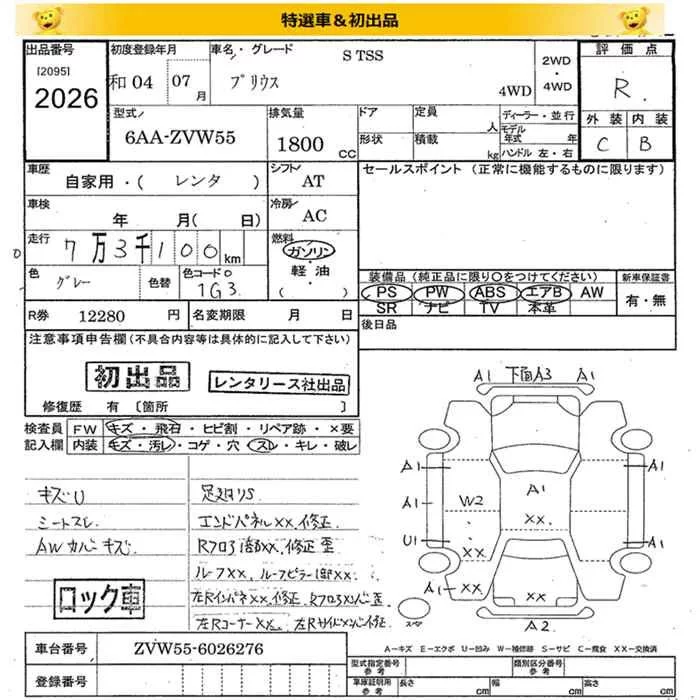 特選車＆初出品
出品番号
[2095]
2026
初度登録年月
和04 07月
車名・グレード
S TSS
プリウス
4WD
2WD・4WD
評価点
R
外装 内装
C B
型式
6AA-ZVW55
排気量
1800 CC
ドア
形状
定員 人
積載 kg
ディーラー・並行
モデル年式 年
ハンドル 左・右
車歴
自家用・( レンタ )
シフト
AT
セールスポイント (正常に機能するものに限ります)
車検
年 月( 日)
冷房
AC
走行
7万3千100 km
燃料
ガソリン・軽油・( )
色
グレー
色替
色コードO
1G3
装備品 (純正品に限り○をつけてください)
PS PW ABS エアB AW
SR ナビ TV 本革
新車保証書
有・無
R券 12280 円
名変期限 月 日
後日品
注意事項申告欄(不具合内容等は具体的に記入して下さい)
初出品
レンタリース社出品
修復歴 有 [箇所 ]
検査員記入欄
FW キズ・飛石・ヒビ割・リペア跡・×要
内装 キズ・汚レ・コゲ・穴・スレ・キレ・破レ
キズU
シートスレ
AWカバーキズ
ロック車
足廻りS
エンドパネルXX.修正.
Rフロア活部XX.修正 歪
ルーフXX.ルーフピラー1部XX.
左Rインパネ XX.修正.
左RコーナーXX.
A1 下面A3 A1
A1 A1
A1 W2 A1
XX
U1 XX A1
A1 XX XX
スペア
A2
A－キズ E－エクボ U－凹み W－補修跡 S－サビ C－腐食 XX－交換済
車台番号
ZVW55-6026276
登録番号
型式指定番号 参考
類別区分番号 参考
車庫証明用 参考
長さ cm
幅 cm
高さ cm